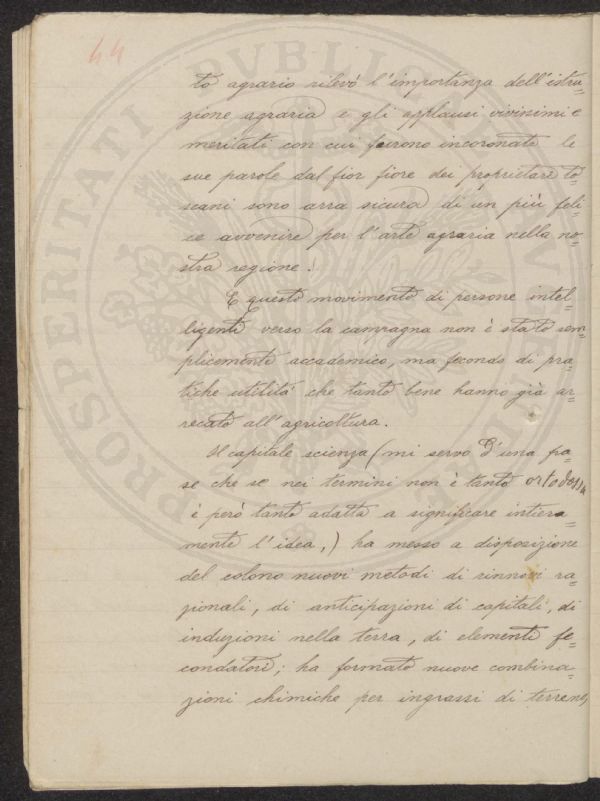 44
to agrario rilevò l'importanza dell'istru=
zione agraria e gli applausi vivissimi e
meritati con cui furono incoronate le
sue parole dal fior fiore dei proprietari to=
scani sono arra sicura di un più feli=
ce avvenire per l'arte agraria nella no=
stra regione.
E questo movimento di persone intel=
ligenti verso la campagna non è stato sem
plicemente accademico, ma fecondo di pra=
tiche utilità che tanto bene hanno già ar=
recato all'agricoltura.
Il capitale scienza (mi servo d'una fra=
se che se nei termini non è tanto ortodossa
è però tanto adatta a significare intiera=
mente l'idea,) ha messo a disposizione
del colono nuovi metodi di rinnovi ra=
zionali, di anticipazioni di capitali, di
induzioni nella terra, di elementi fe=
condatori; ha formato nuove combina=
zioni chimiche per ingrassi di terreno,
PROSPERITATI PVBLICAE